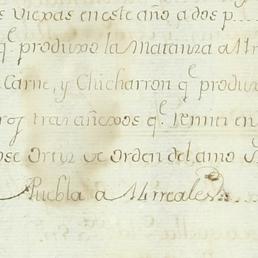 Viexas en este año a dos p
q.e produxo la Matanza a
Carne, y Chicharron q.e produx
tras añexos q.e remiti en
Jose Ortiz de orden del amo
Puebla a 14 reales